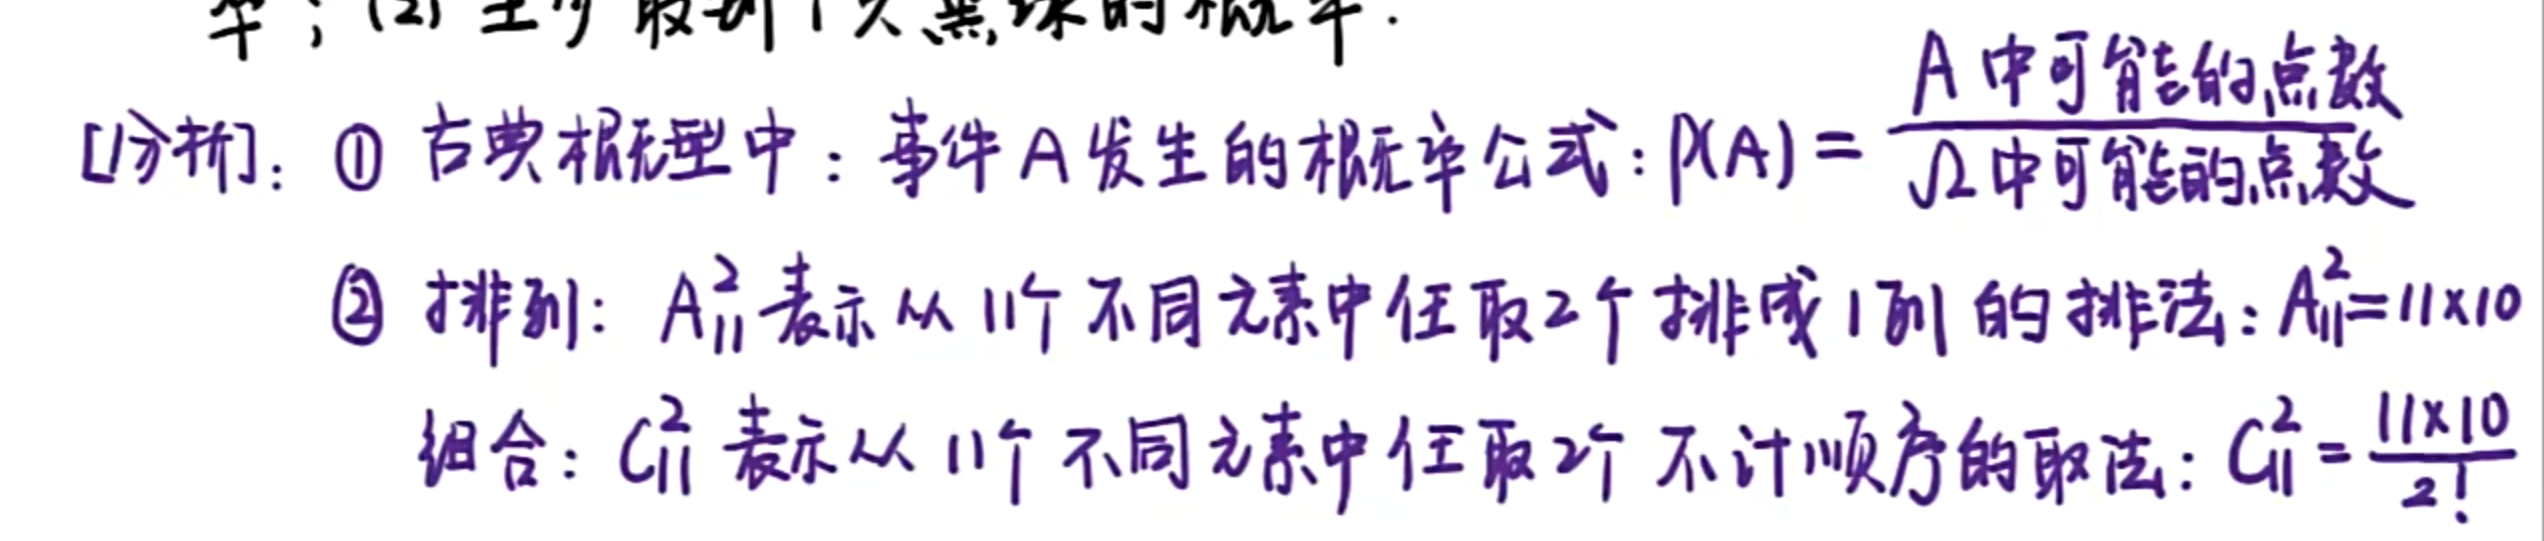 率；(2) 至少取到1只黑球的概率.
[分析]: ① 古典概型中：事件A发生的概率公式: P(A) = A中可能的点数 / Ω中可能的点数
② 排列: A₁₁² 表示从11个不同元素中任取2个排成1列的排法: A₁₁² = 11×10
组合: C₁₁² 表示从11个不同元素中任取2个不计顺序的取法: C₁₁² = 11×10 / 2!